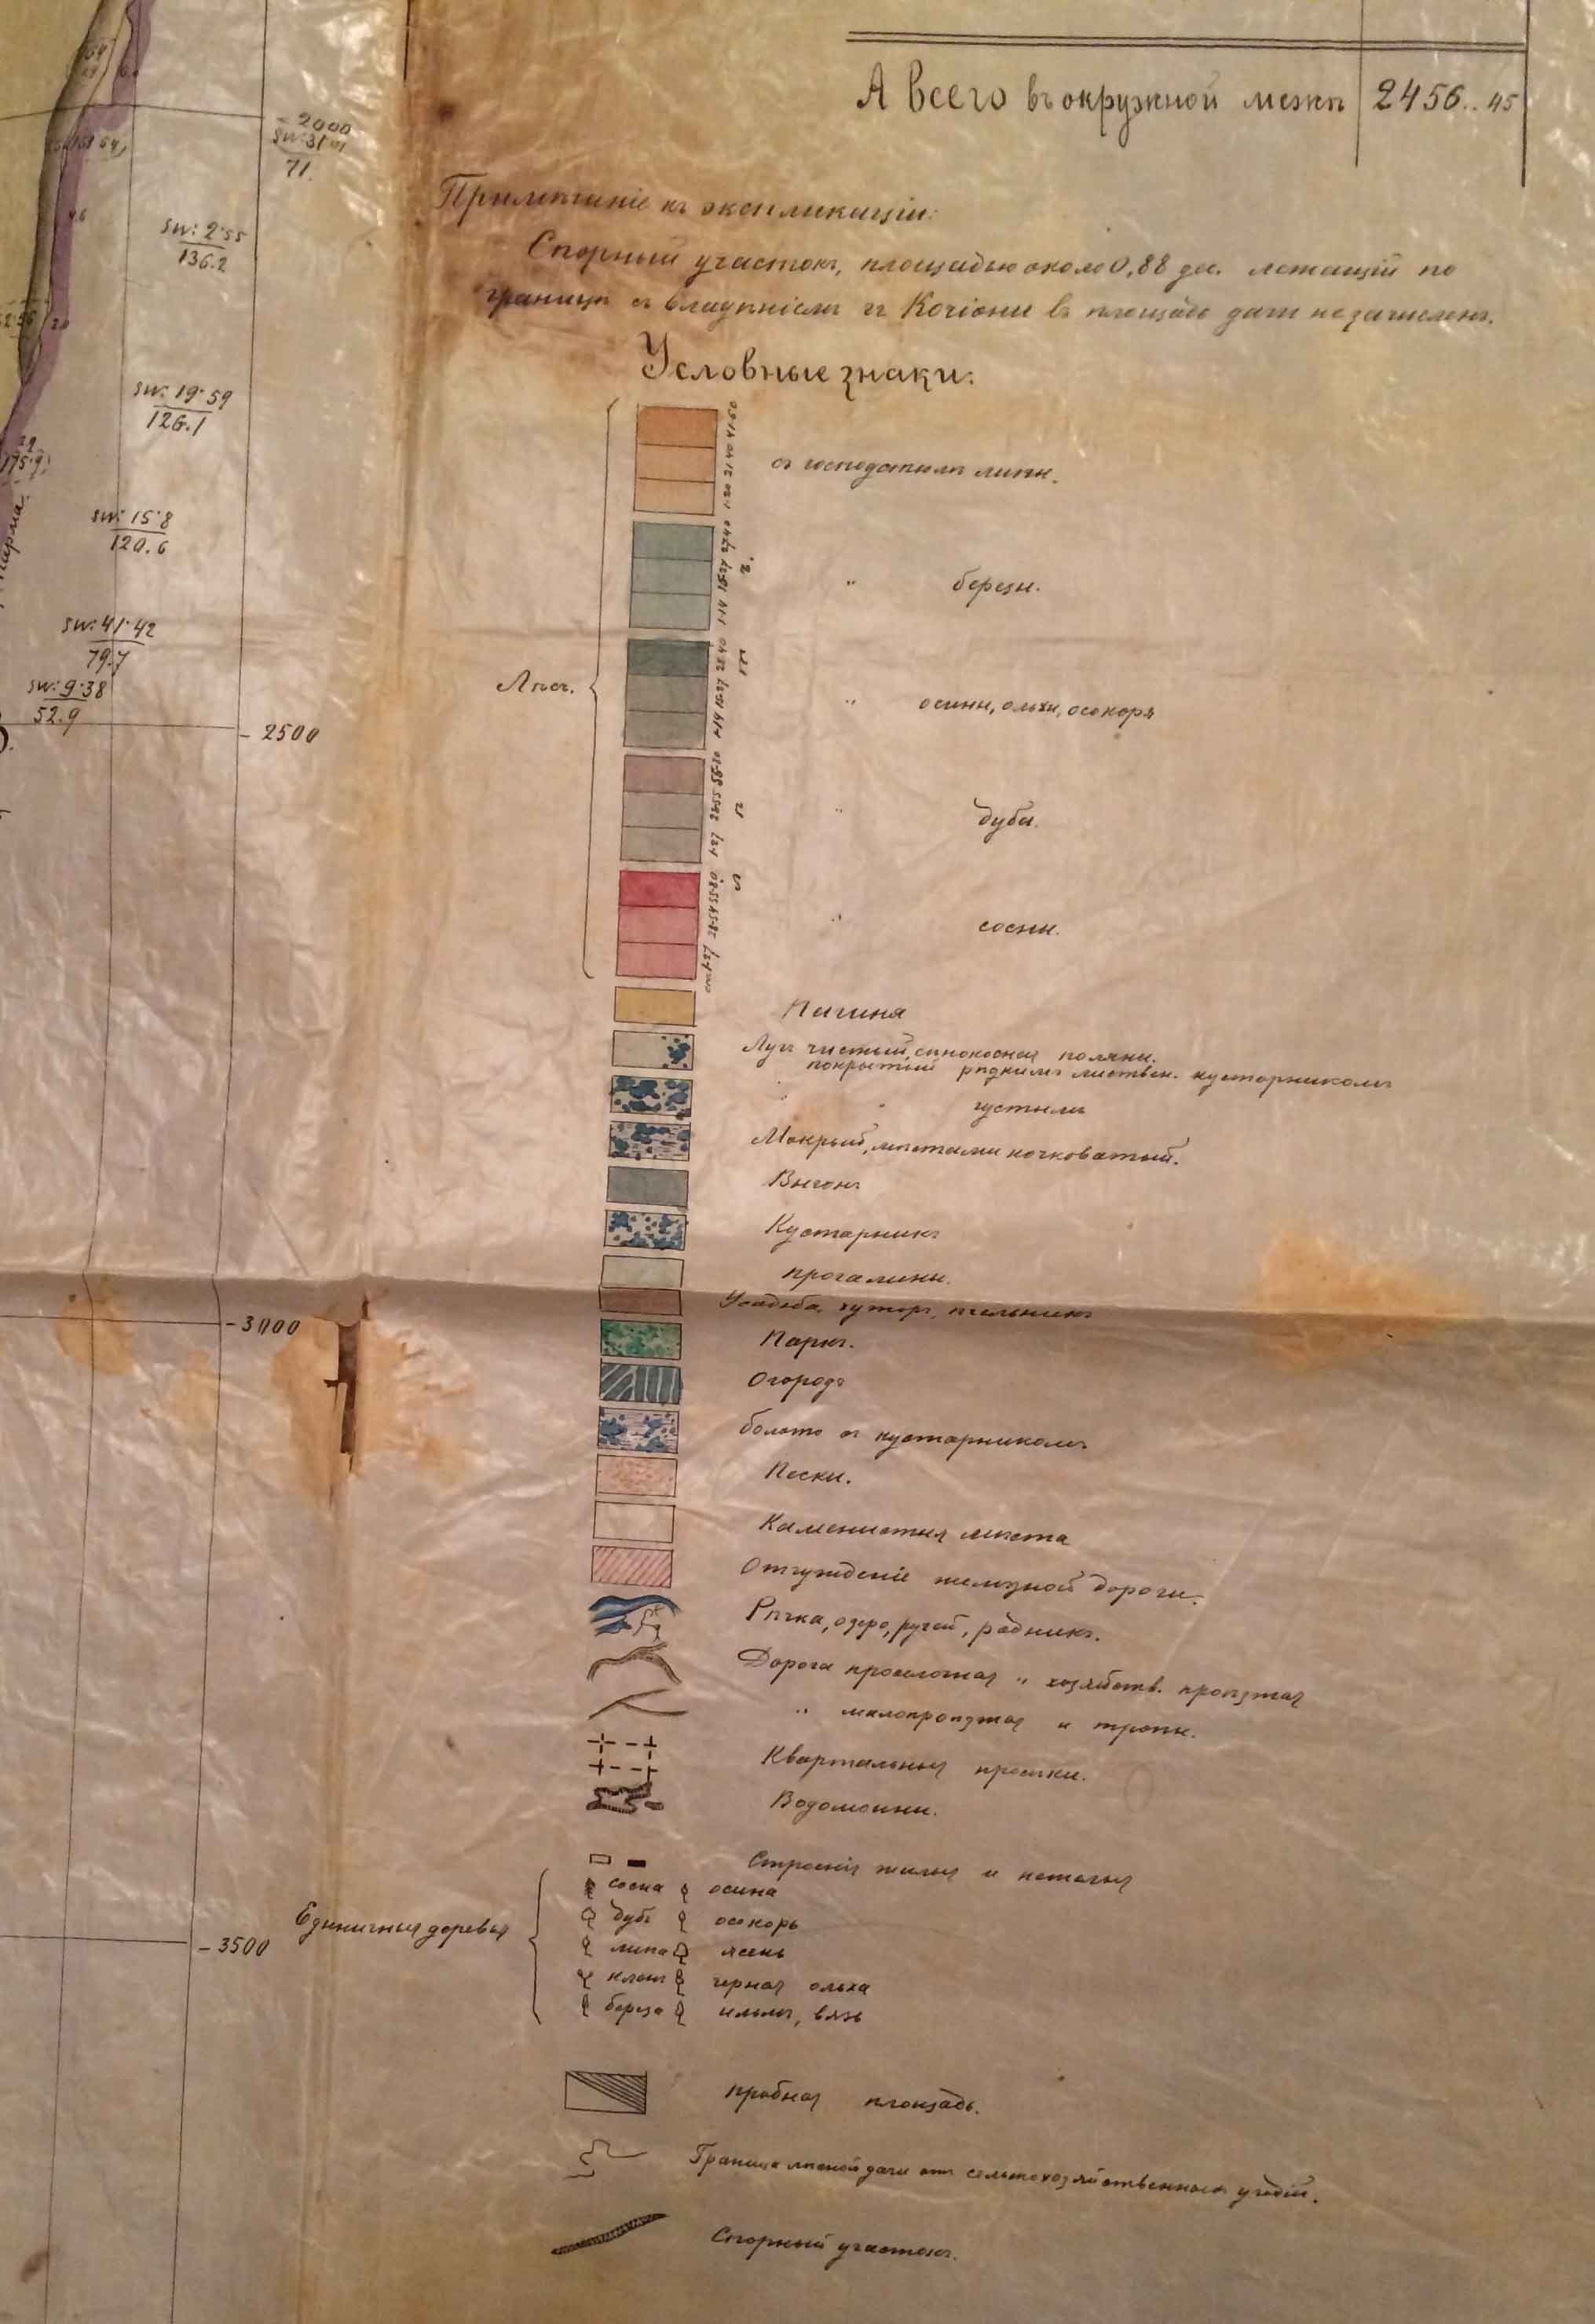 А всего въ окружной межѣ 2456..45
Примѣчаніе къ экспликаціи:
Спорный участокъ, площадью около 0,88 дес. лежащій по
границѣ съ владѣніемъ гг Кочіони въ площадь дачи не зачисленъ.
Условные знаки:
Лѣсъ.
съ господствомъ липы.
" березы.
" осины, ольхи, осокоря
" дуба.
" сосны.
Пашня
Лугъ чистый, сѣнокосная поляна.
покрытый рѣдкимъ листвен. кустарникомъ
" " густымъ
Мокрый, мѣстами кочковатый.
Выгонъ
Кустарникъ
прогалины.
Усадьба, хуторъ, пчельникъ
Паркъ.
Огородъ
болото съ кустарникомъ
Пески.
Каменистыя мѣста
Отчужденіе желѣзной дороги.
Рѣчка, озеро, ручей, родникъ.
Дорога проселочная " хозяйств. проѣзжая
" малопроѣзжая и тропы.
Квартальныя просѣки.
Водомоины.
Строенія жилыя и нежилыя
Единичныя деревья
сосна осина
дубъ осокорь
липа ясень
кленъ черная ольха
береза ильмъ, вязь
пробная площадь.
Граница лѣсной дачи отъ сельскохозяйственныхъ угодій.
Спорный участокъ.
- 2000
SW: 31
71.
SW: 2·55
136.2
SW: 19·59
126.1
SW: 15·8
120.6
SW: 41·42
79.7
SW: 9·38
52.9
- 2500
- 3000
- 3500